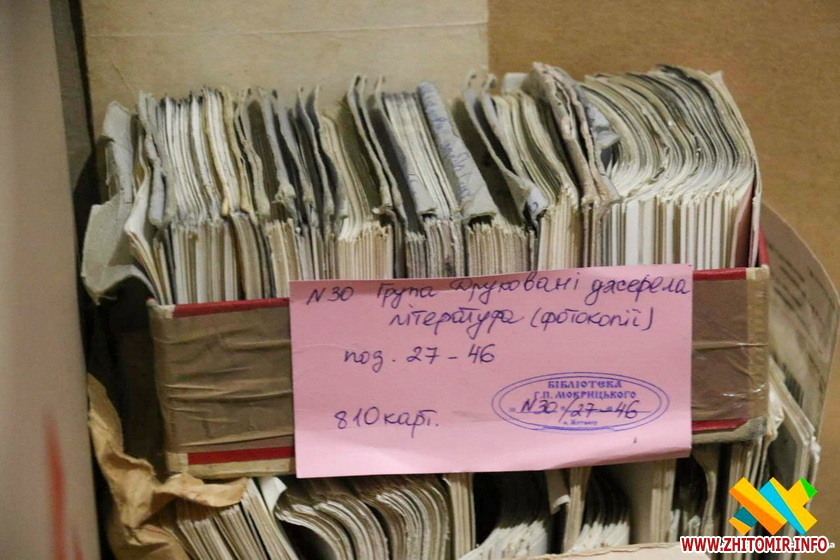 N30 Група Друковані джерела
література (фотокопії)
поз. 27-46
810 карт.
БІБЛІОТЕКА
Г.П. МОКРИЦЬКОГО
N30 /27-46
м. Житомир
WWW.ZHITOMIR.INFO